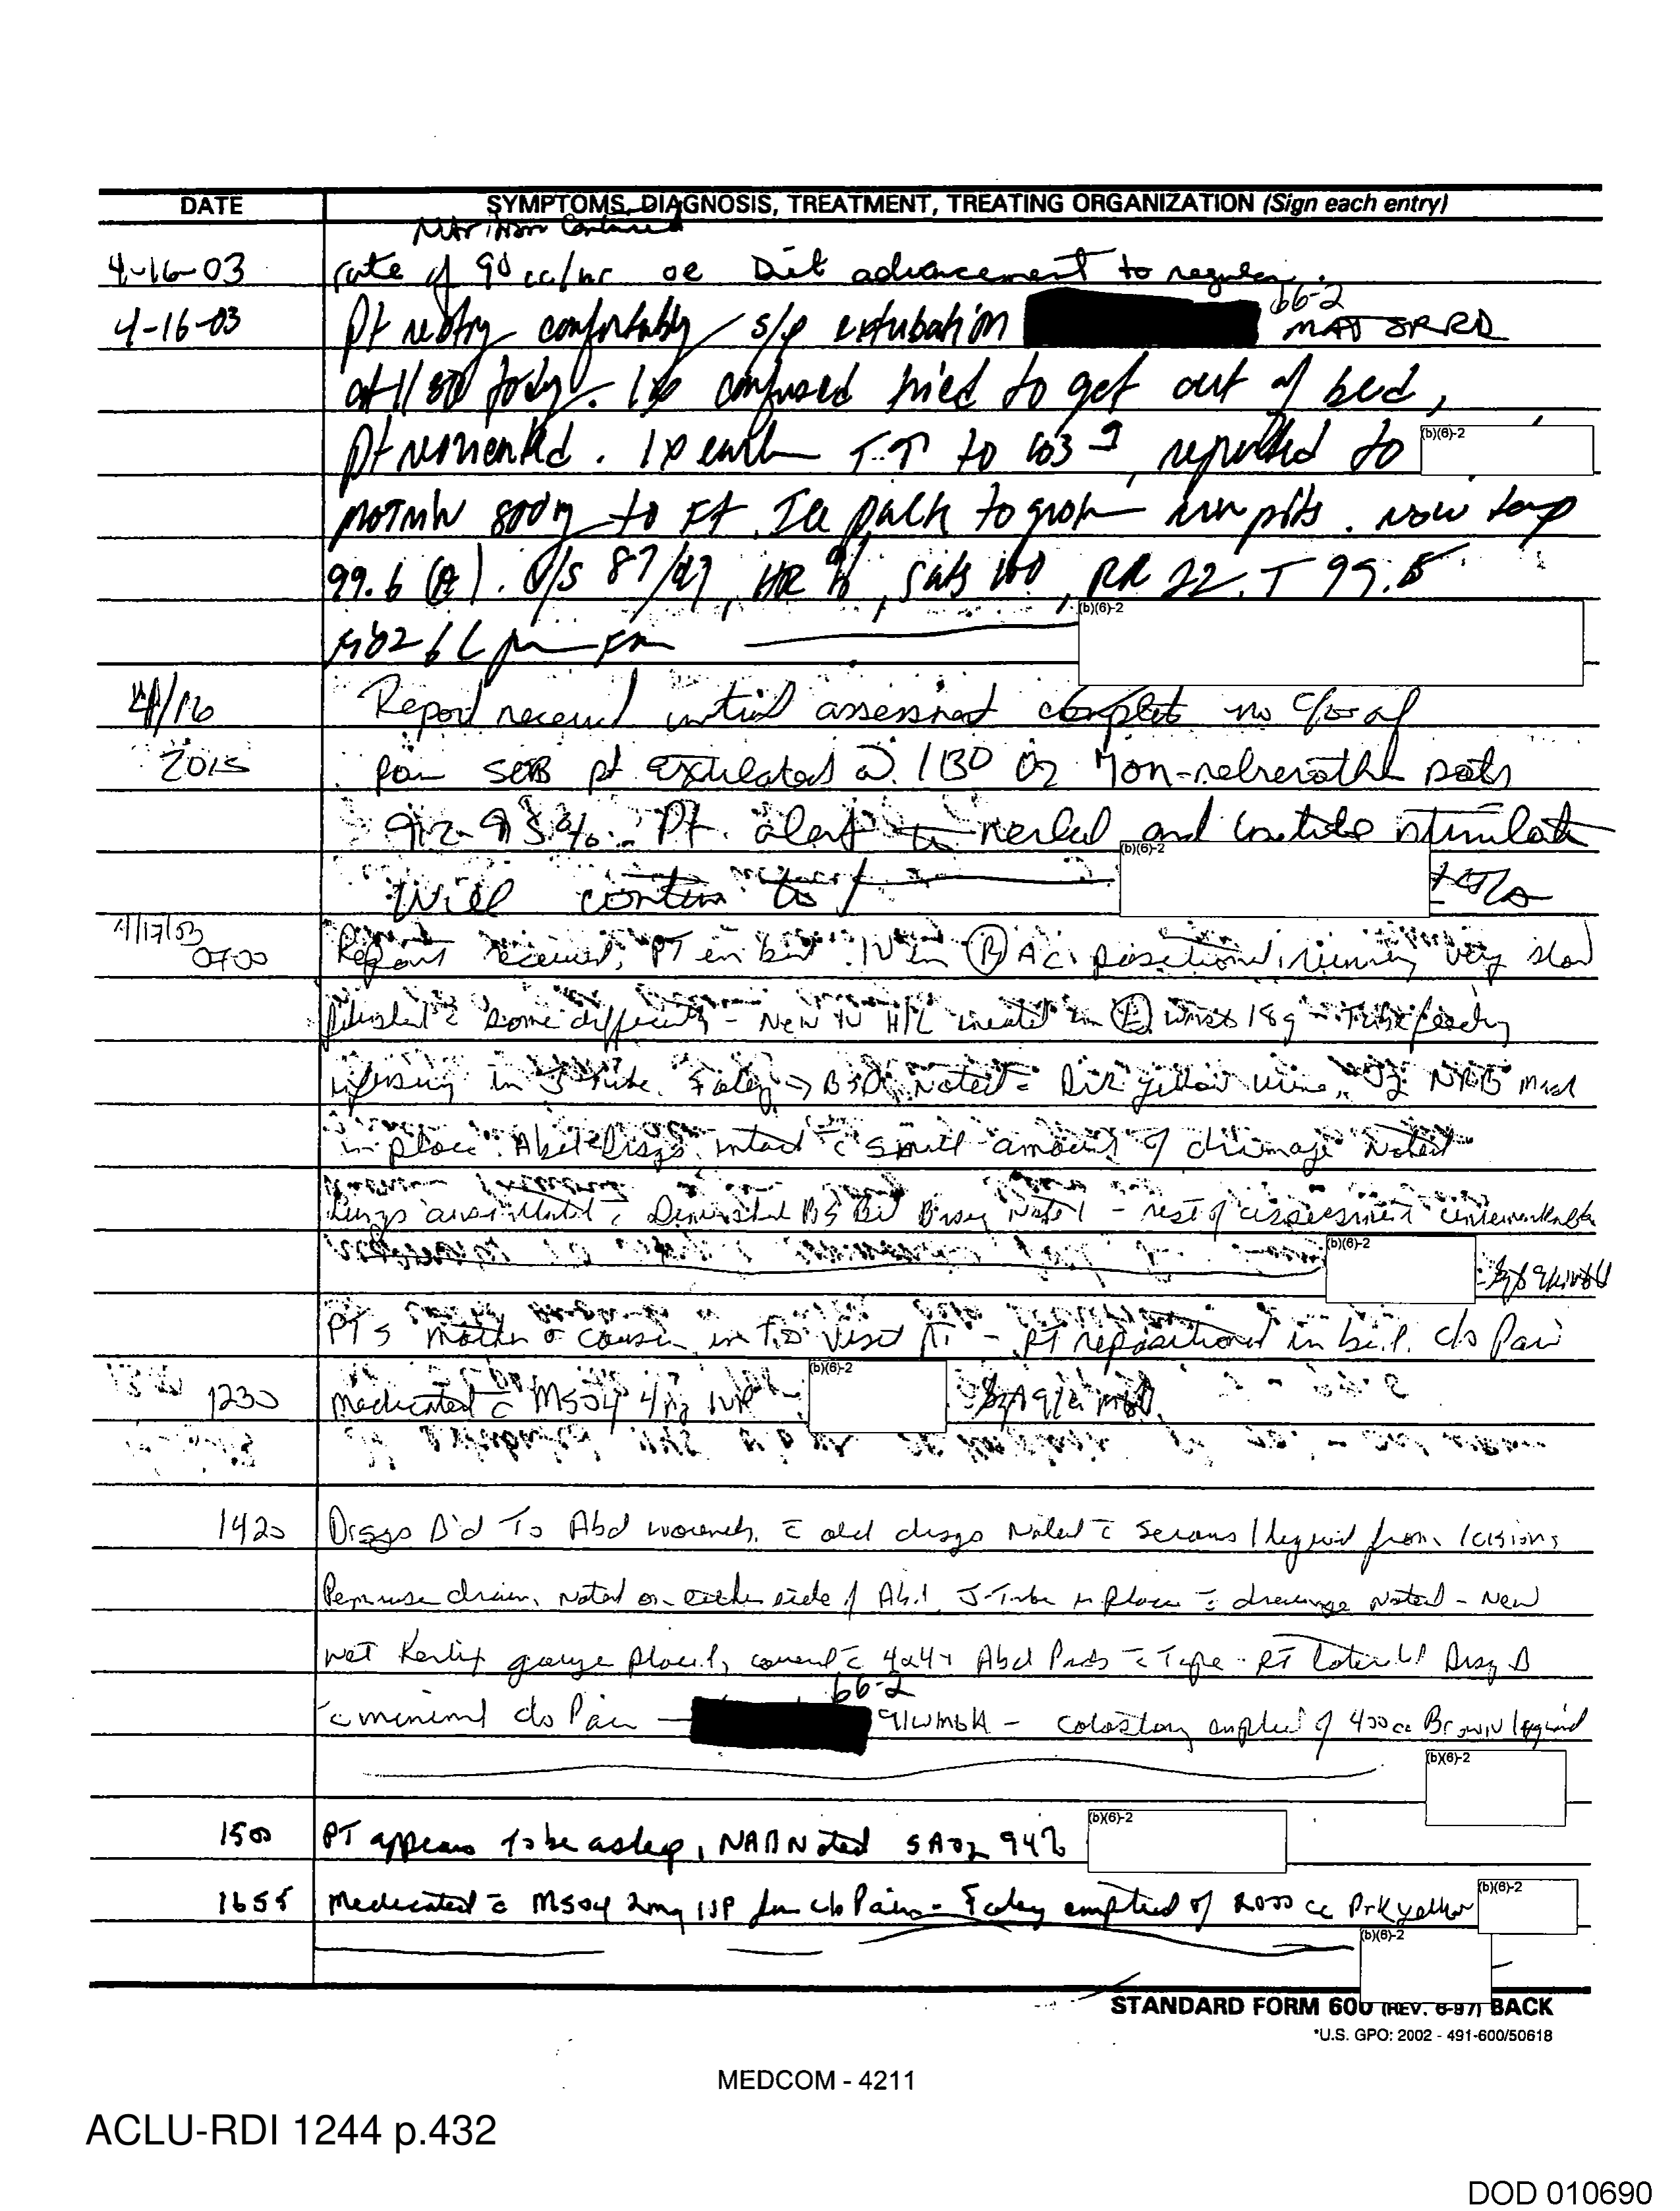 DATE SYMPTOMS, DIAGNOSIS, TREATMENT, TREATING ORGANIZATION (Sign each entry)
Nutrition Continued
4-16-03 rate of 90 cc/hr or Diet advancement to regular.
b6-2
4-16-03 Pt resting comfortably s/p extubation MAJ SP RD
at 1130 today. 1x confused tried to get out of bed,
pt reoriented. 1x earlier TT to 103 reported to (b)(6)-2
Motrin 800 mg to FT. Ice pack to groin arm pits. Now temp
99.6 (A). V/S 87/47, HR, Sats 100, RR 22. T 99.5
6L (b)(6)-2
4/16 Report received initial assessment complete no c/o of
2015 pain SOB pt extubated @ 1130 O2 non-rebreather sats
92-93%. Pt. alert to verbal and tactile stimulate
(b)(6)-2
Will continue to
4/17/03
0700 Report received, PT in bed. IV in (R) AC, positional, running very slow
flushed c̄ some difficulty - New IV H/L inserted in (L) wrist 18g - Tube feeding
infusing in J tube. Foley → BSD. Noted c̄ Drk yellow urine. O2 NRB mask
in place. Abd Drsgs. intact c̄ small amount of drainage Noted
Lungs auscultated c̄ Diminished BS Bil Bases Noted - rest of assessment unremarkable
(b)(6)-2
PT's mother & cousin in to visit PT - PT repositioned in bed. c/o Pain
(b)(6)-2
1230 medicated c̄ MSO4 4mg IVP
1420 Drsgs D'd To Abd wounds. c̄ old drsgs Noted c̄ serous liquid from incisions
Penrose drain, Noted on either side of Abd. J-Tube in place c̄ drainage Noted - New
wet Kerlix gauze placed, covered c̄ 4x4 + Abd Pads c̄ Tape - PT tolerated Drsg D
b6-2
c̄ minimal c/o Pain — 91WM6 - colostomy emptied of 400cc Brown liquid
(b)(6)-2
1500 PT appears to be asleep, NAD Noted SAO2 94% (b)(6)-2
1655 Medicated c̄ MSO4 2mg IVP for c/o Pain - Foley emptied of 2000 cc Drk yellow (b)(6)-2
(b)(6)-2
STANDARD FORM 600 (REV. 6-97) BACK
*U.S. GPO: 2002 - 491-600/50618
MEDCOM - 4211
ACLU-RDI 1244 p.432
DOD 010690